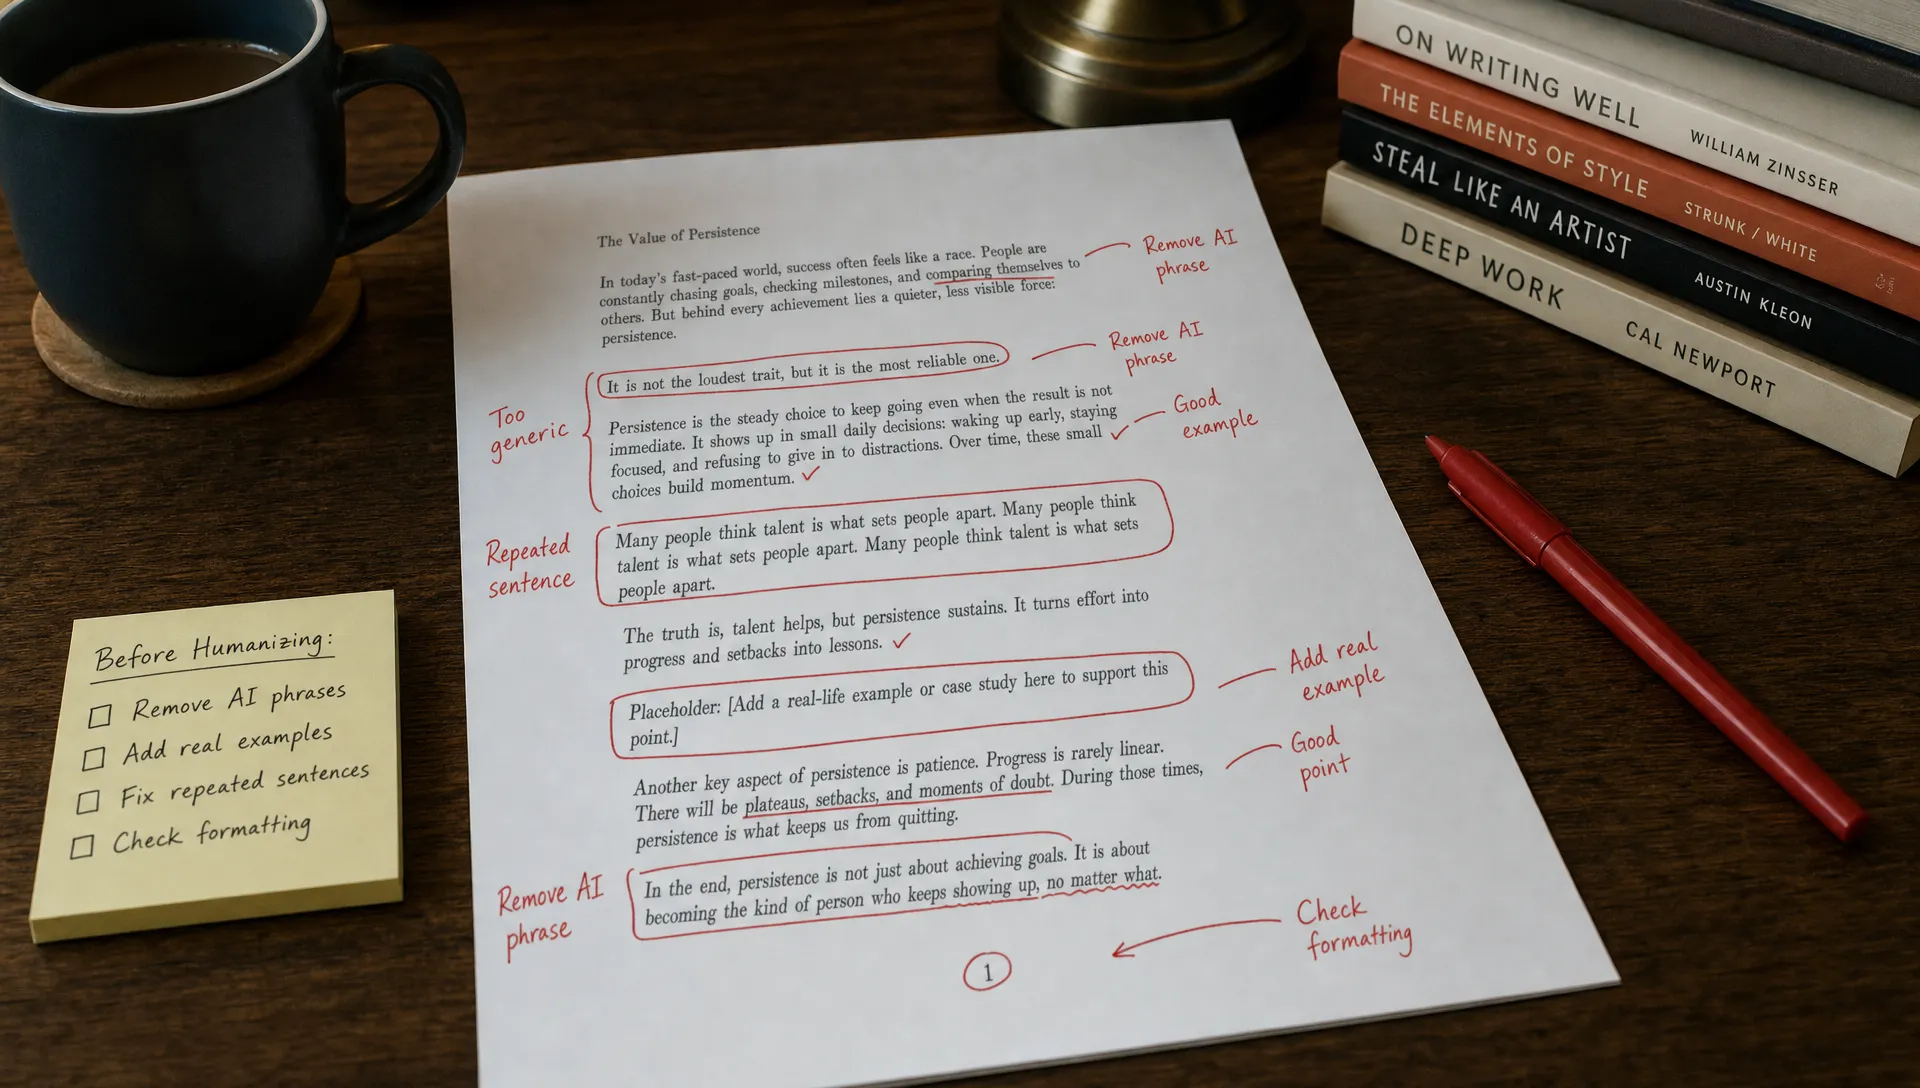 ON WRITING WELL WILLIAM ZINSSER
THE ELEMENTS OF STYLE STRUNK / WHITE
STEAL LIKE AN ARTIST AUSTIN KLEON
DEEP WORK CAL NEWPORT
The Value of Persistence
In today's fast-paced world, success often feels like a race. People are
constantly chasing goals, checking milestones, and comparing themselves to
others. But behind every achievement lies a quieter, less visible force:
persistence.
Remove AI
phrase
It is not the loudest trait, but it is the most reliable one.
Remove AI
phrase
Too
generic
Persistence is the steady choice to keep going even when the result is not
immediate. It shows up in small daily decisions: waking up early, staying
focused, and refusing to give in to distractions. Over time, these small ✓
choices build momentum. ✓
Good
example
Repeated
sentence
Many people think talent is what sets people apart. Many people think
talent is what sets people apart. Many people think talent is what sets
people apart.
The truth is, talent helps, but persistence sustains. It turns effort into
progress and setbacks into lessons. ✓
Placeholder: [Add a real-life example or case study here to support this
point.]
Add real
example
Another key aspect of persistence is patience. Progress is rarely linear.
There will be plateaus, setbacks, and moments of doubt. During those times,
persistence is what keeps us from quitting.
Good
point
Remove AI
phrase
In the end, persistence is not just about achieving goals. It is about
becoming the kind of person who keeps showing up, no matter what.
Check
formatting
1
Before Humanizing:
☐ Remove AI phrases
☐ Add real examples
☐ Fix repeated sentences
☐ Check formatting